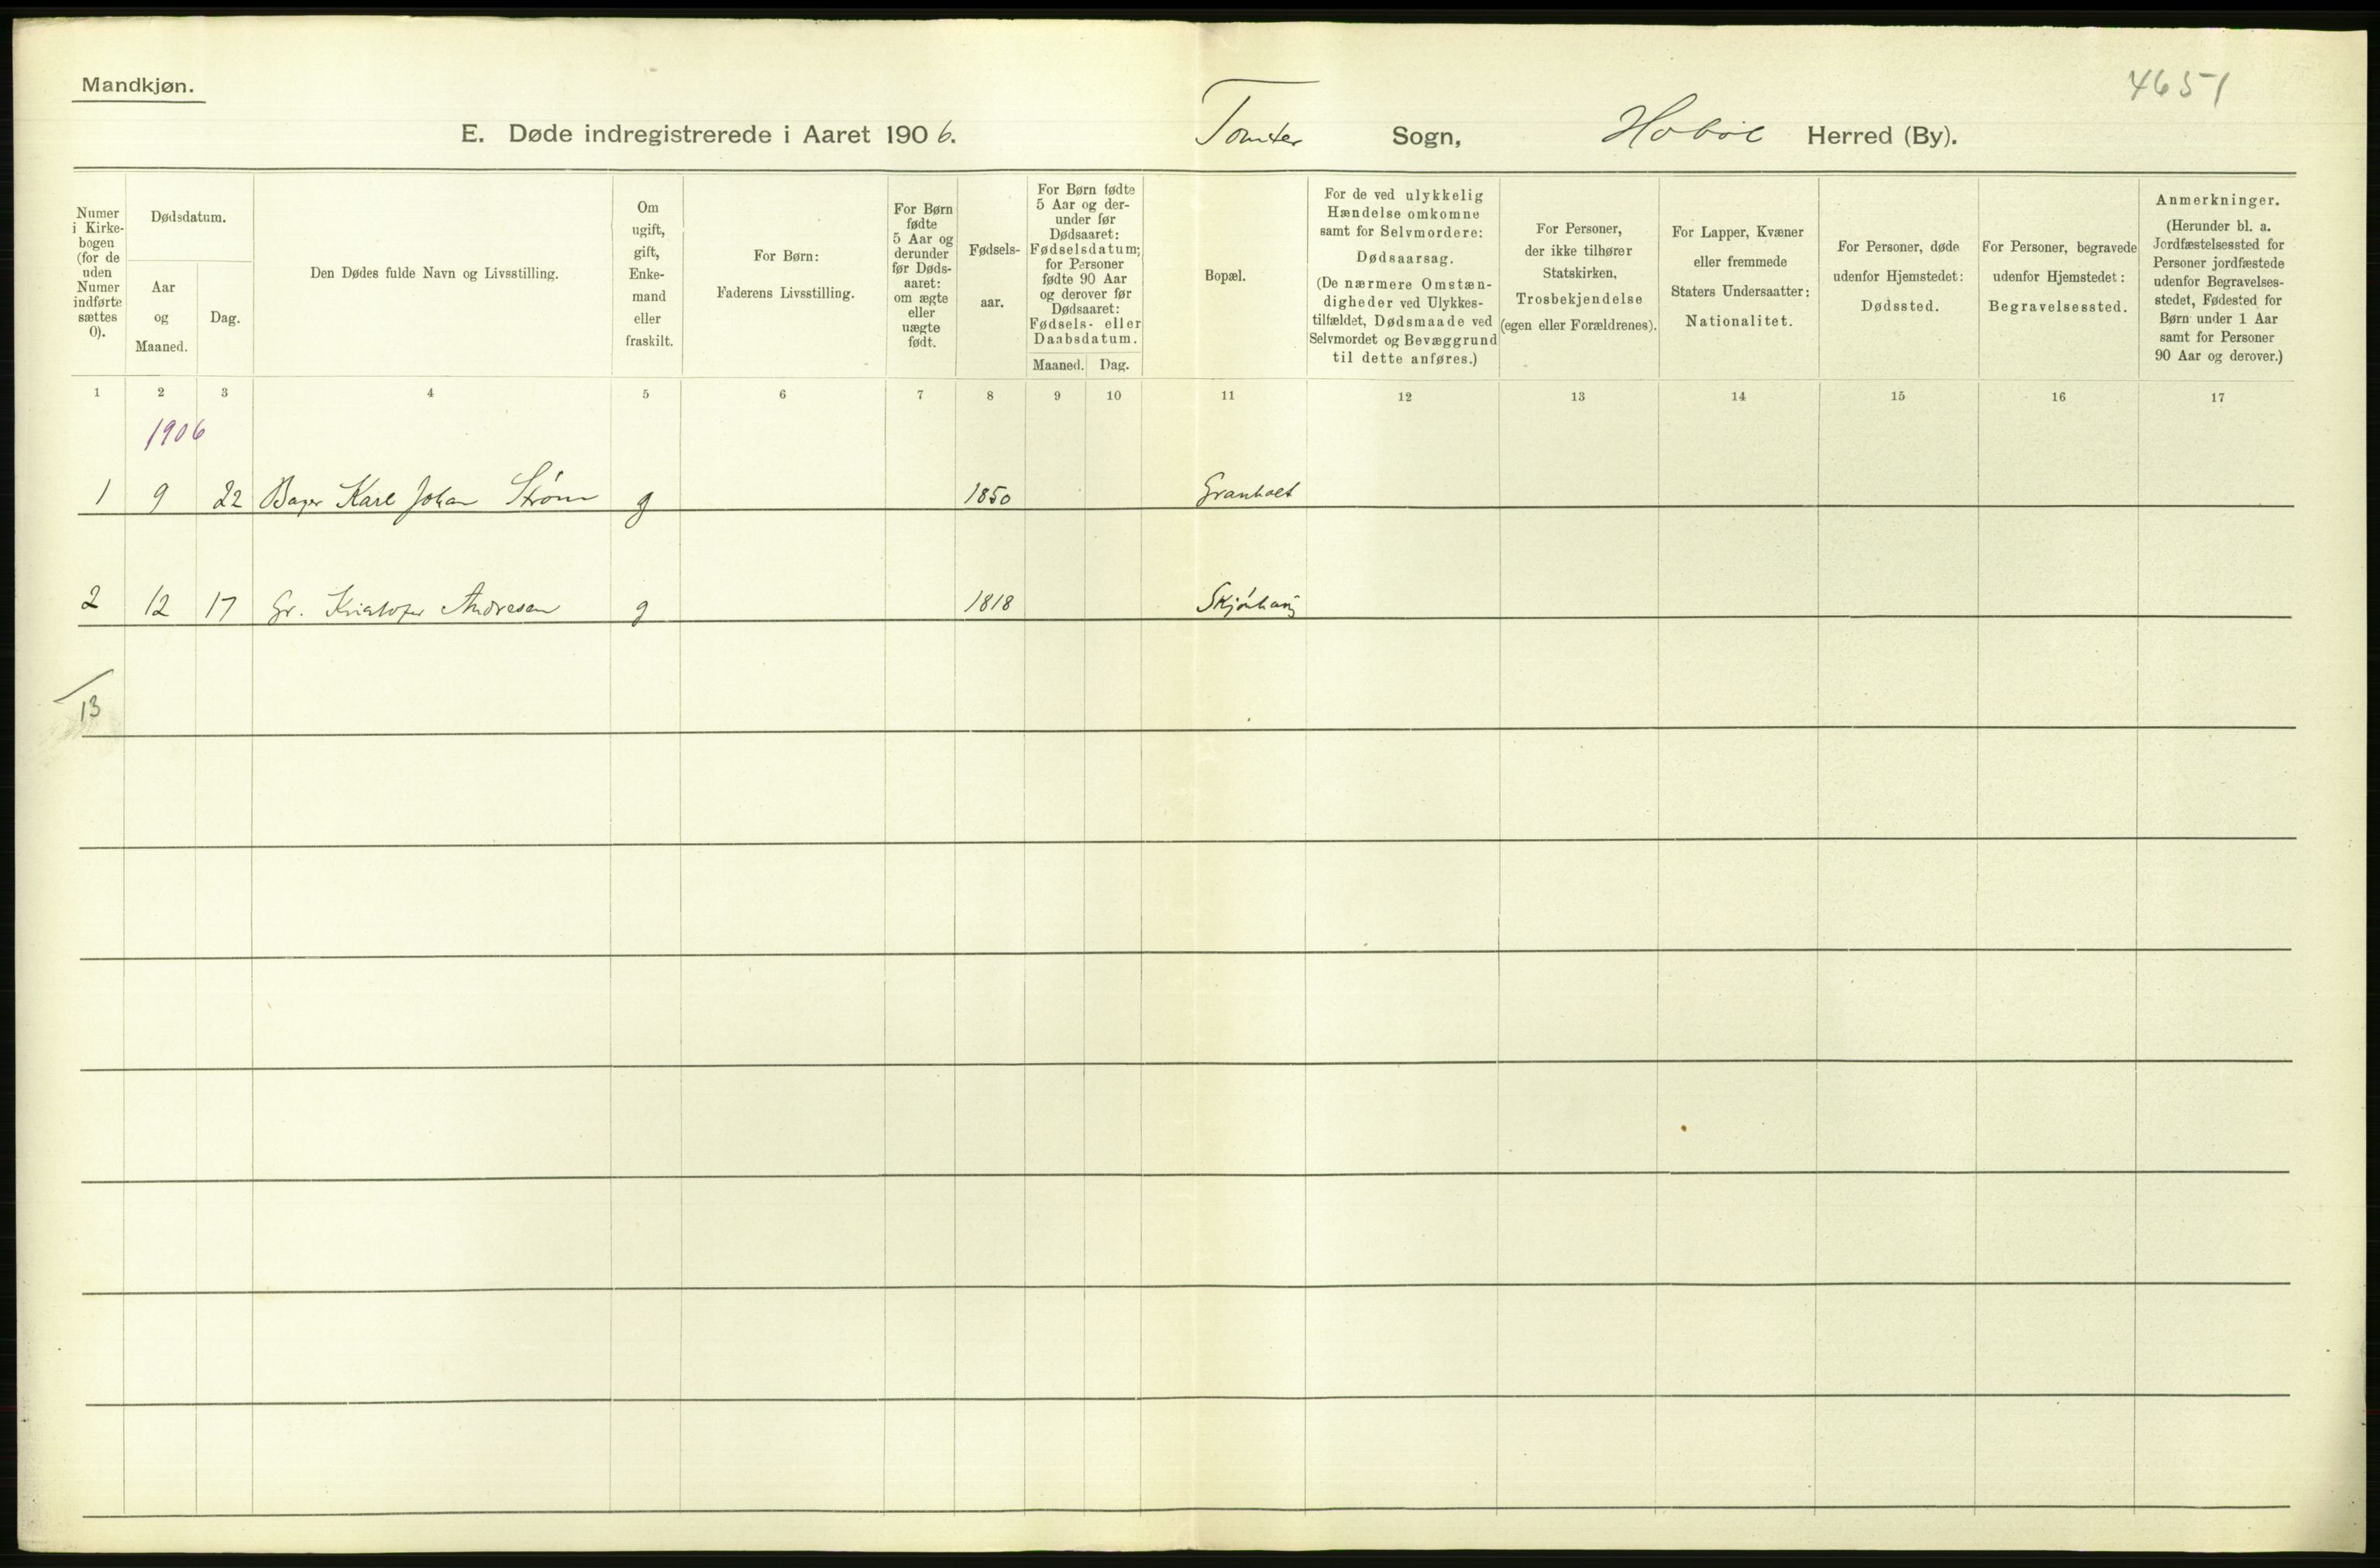 Mandkjøn.
4651
E. Døde indregistrerede i Aaret 1906. Tomter Sogn, Hobøl Herred (By).
Numer i Kirke-bogen (for de uden Numer indførte sættes 0).
Dødsdatum.
Aar og Maaned.
Dag.
Den Dødes fulde Navn og Livsstilling.
Om ugift, gift, Enke-mand eller fraskilt.
For Børn: Faderens Livsstilling.
For Børn fødte 5 Aar og derunder før Døds-aaret: om ægte eller uægte født.
Fødsels-aar.
For Børn fødte 5 Aar og der-under før Dødsaaret: Fødselsdatum; for Personer fødte 90 Aar og derover før Dødsaaret: Fødsels- eller Daabsdatum.
Maaned. Dag.
Bopæl.
For de ved ulykkelig Hændelse omkomne samt for Selvmordere: Dødsaarsag. (De nærmere Omstæn-digheder ved Ulykkes-tilfældet, Dødsmaade ved Selvmordet og Bevæggrund til dette anføres.)
For Personer, der ikke tilhører Statskirken, Trosbekjendelse (egen eller Forældrenes).
For Lapper, Kvæner eller fremmede Staters Undersaatter: Nationalitet.
For Personer, døde udenfor Hjemstedet: Dødssted.
For Personer, begravede udenfor Hjemstedet: Begravelsessted.
Anmerkninger. (Herunder bl. a. Jordfæstelsessted for Personer jordfæstede udenfor Begravelses-stedet, Fødested for Børn under 1 Aar samt for Personer 90 Aar og derover.)
1 2 3 4 5 6 7 8 9 10 11 12 13 14 15 16 17
1906
1 9 22 Bager Karl Johan Strøm g 1850 Granholt
2 12 17 Gr. Kristofer Andresen g 1818 Skjønhaug
13